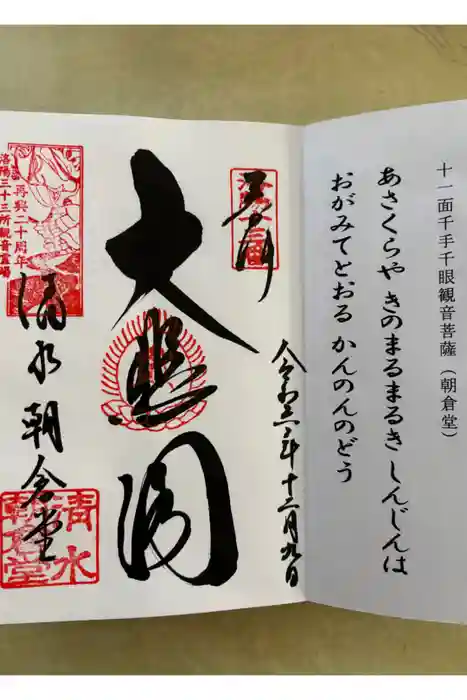 十一面千手千眼観音菩薩（朝倉堂）
あさくらや きのまるまるき しんじんは
おがみてとおる かんのんのどう
令和三年十二月九日
奉拝
大悲閣
再興二十周年
洛陽三十三所観音霊場
清水 朝倉堂
清水
朝倉堂